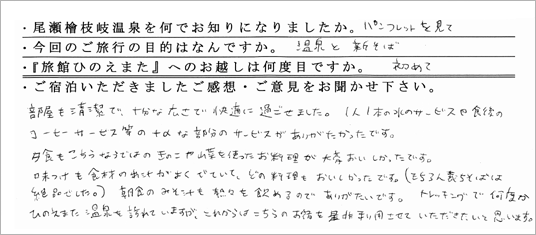 ・尾瀬檜枝岐温泉を何でお知りになりましたか。 パンフレットを見て
・今回のご旅行の目的はなんですか。 温泉と新そば
・『旅館ひのえまた』へのお越しは何度目ですか。 初めて
・ご宿泊いただきましたご感想・ご意見をお聞かせ下さい。
部屋も清潔で、十分な広さで快適に過ごせました。1人1本の水のサービスや食後の
コーヒーサービス等の+αな部分のサービスがありがたかったです。
夕食もこちらならではのきのこや山菜を使ったお料理が大変おいしかったです。
味つけも食材のあじがよくでていて、どの料理もおいしかったです。(とちろん裁ちそばは
絶品でした。) 朝食のみそ汁も熱々を飲めるのでありがたいです。 トレッキングで何度か
ひのえまた温泉も訪れていますが、これからはこちらのお宿を是非利用させていただきたいと思います。